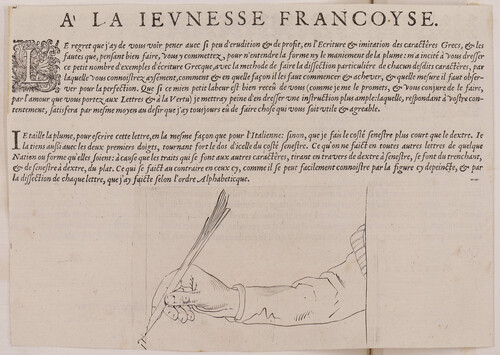 A' LA IEVNESSE FRANCOYSE.
LE regret que j'ay de vous voir pener avec si peu d'erudition & de profit, en l'Ecriture & imitation des caractères Grecs, & les
fautes que, pensant bien faire, vous y commettez, pour n'entendre la forme ny le maniement de la plume: m'a incité à vous dresser
ce petit nombre d'exemples d'écriture Grecque, avec la methode de faire la dissection particulière de chacun desdits caractères, par
laquelle vous connoistrez aysément, comment & en quelle façon il les faut commencer & achever, & quelle mesure il faut obser-
ver pour la perfection. Que si ce mien petit labeur est bien receu de vous (comme je me le promets, & vous conjure de le faire,
par l'amour que vous portez aux Lettres & à la Vertu) je mettray peine d'en dresser une instruction plus ample: laquelle, respondant à vostre con-
tentement, satisfera par mesme moyen au desir que j'ay tousjours eu de faire chose qui vous soit utile & agreable.
IE taille la plume, pour escrire cette lettre, en la mesme façon que pour l'Italienne: sinon, que je fais le costé senestre plus court que le dextre. Ie
la tiens aussi avec les deux premiers doigts, tournant fort le dos d'icelle du costé senestre. Ce qu'on ne faict en toutes autres lettres de quelque
Nation ou forme qu'elles soient: à cause que les traits qui se font aux autres caractères, tirant en travers de dextre à senestre, se font du trenchant,
& de senestre à dextre, du plat. Ce qui se faict au contraire en ceux cy, comme il se peut facilement connoistre par la figure cy depeincte, & par
la dissection de chaque lettre, que j'ay faicte selon l'ordre Alphabeticque.